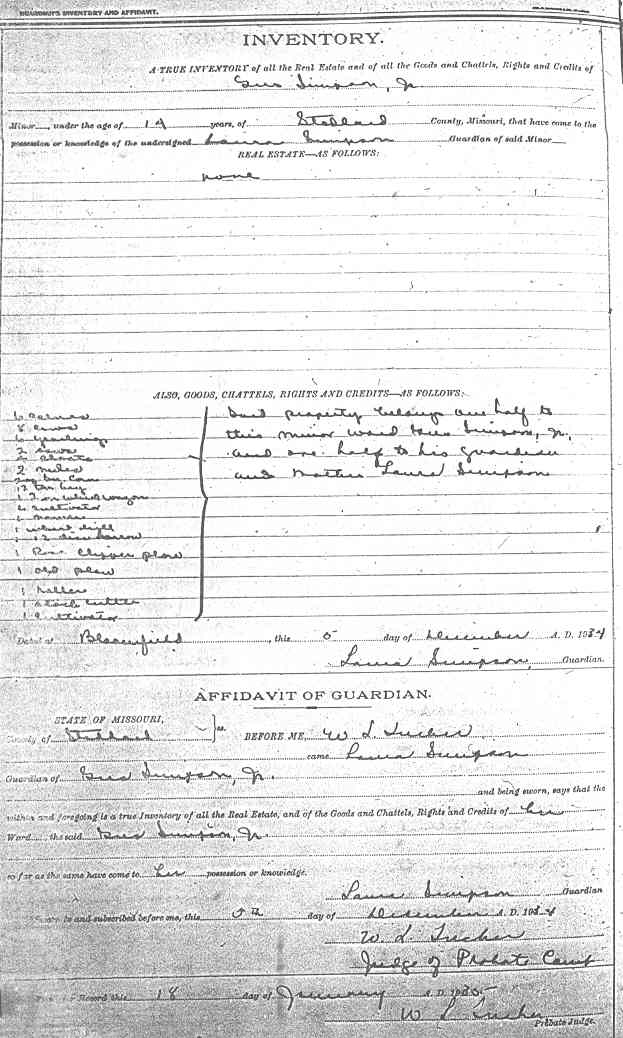 GUARDIAN'S INVENTORY AND AFFIDAVIT.
INVENTORY.
A TRUE INVENTORY of all the Real Estate and of all the Goods and Chattels, Rights and Credits of
Gus Simpson, Jr
Minor, under the age of 14 years, of Stoddard County, Missouri, that have come to the
possession or knowledge of the undersigned Laura Simpson Guardian of said Minor
REAL ESTATE—AS FOLLOWS:
none
ALSO, GOODS, CHATTELS, RIGHTS AND CREDITS—AS FOLLOWS:
Said property belongs one half to
this minor ward Gus Simpson, Jr.
and one half to his guardian
and mother Laura Simpson
8 cows
6 yearlings
2 sows
2 mules
12 ton hay
1 wheat drill
1 12 disc harrow
1 Clipper plow
1 old plow
1 roller
1 stalk cutter
1 cultivator
Dated at Bloomfield, this 5 day of December A. D. 1934
Laura Simpson, Guardian.
AFFIDAVIT OF GUARDIAN.
STATE OF MISSOURI, } ss.
County of Stoddard BEFORE ME, W L Tucker
came Laura Simpson
Guardian of Gus Simpson, Jr.
and being sworn, says that the
within and foregoing is a true Inventory of all the Real Estate, and of the Goods and Chattels, Rights and Credits of her
Ward, the said Gus Simpson, Jr.
so far as the same have come to her possession or knowledge.
Laura Simpson Guardian
Sworn to and subscribed before me, this 5th day of December A. D. 1934
W. L. Tucker
Judge of Probate Court
Record this 18 day of January A. D. 1935
W L Tucker
Probate Judge.